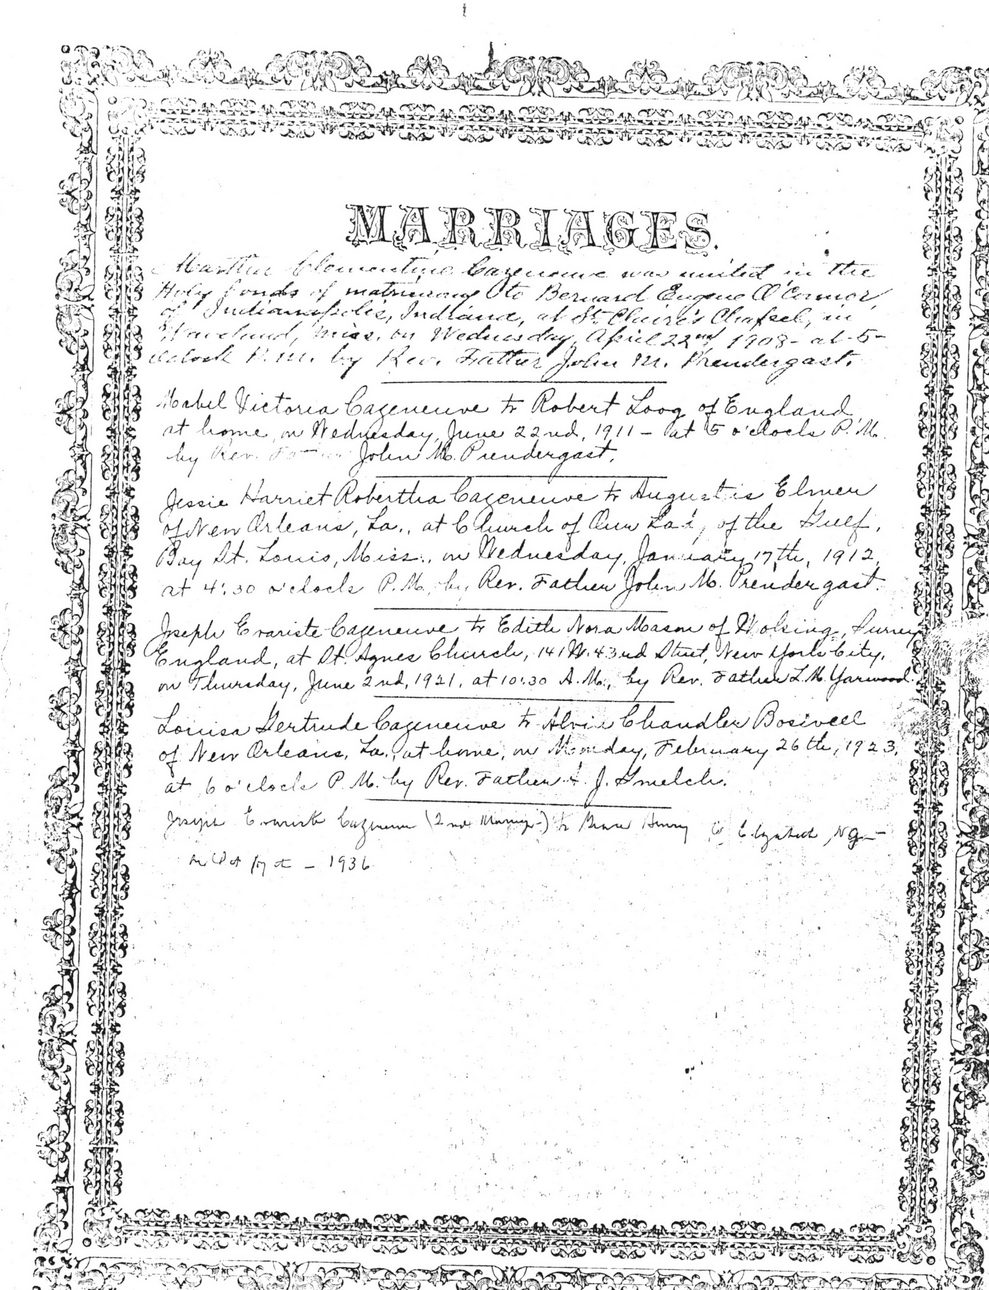 MARRIAGES.
Clementine Cazeneuve was united in the
Holy bonds of matrimony to Bernard Eugene O'Connor,
of Indianapolis, Indiana, at St. Claire's Chapel, in
Waveland, Miss. on Wednesday, April 22nd 1908 - at - 5 -
o'clock P.M. by Rev. Father John M. Prendergast.
Mabel Victoria Cazeneuve to Robert Loog of England
at home, on Wednesday, June 22nd, 1911 - at 5 o'clock P.M.
by Rev. John M. Prendergast.
Jessie Harriet Robertha Cazeneuve to Augustis Elmer
of New Orleans, La., at Church of Our Lady of the Gulf,
Bay St. Louis, Miss., on Wednesday, January 17th, 1912,
at 4:30 o'clock P.M. by Rev. Father John M. Prendergast.
Joseph Evariste Cazeneuve to Edith Nora Mason of Woking, Surrey
England, at St. Agnes Church, 141 W. 43rd Street, New York City,
on Thursday, June 2nd, 1921, at 10:30 A.M., by Rev. Father L.M. Yarwood.
Louisa Gertrude Cazeneuve to Alvin Chandler Bosivell
of New Orleans, La., at home, on Monday, February 26th, 1923,
at 6 o'clock P.M. by Rev. Father J. Gmelch.
Joseph Cazeneuve (2nd Marriage) to Henry Elizabeth, N.J. -
on Oct 17th - 1936